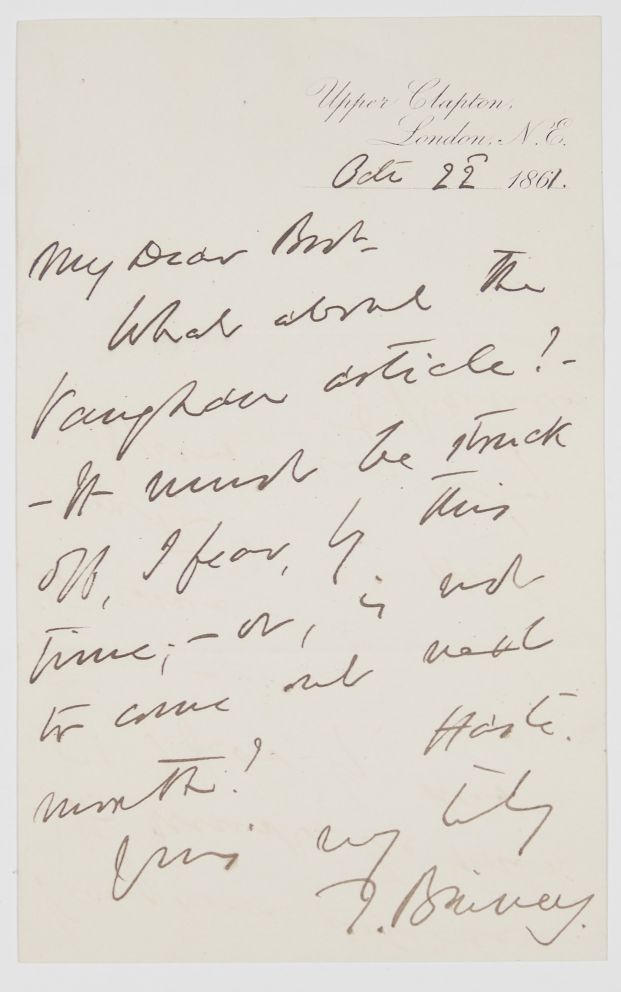 Upper Clapton,
London, N.E.
Octr 22 1861.
My Dear Brst-
What about the
Vaughan article?-
- It must be struck
off, I fear, by this
time;- or, is not
to come out next
month? Haste.
Yours vy truly
T. Binney.